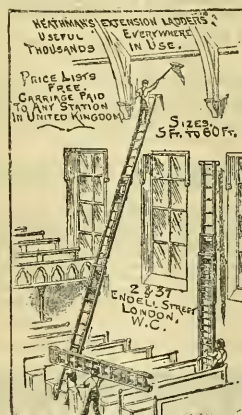 HEATHMAN'S EXTENSION LADDERS.
USEFUL EVERYWHERE
THOUSANDS IN USE.
PRICE LISTS
FREE.
CARRIAGE PAID
TO ANY STATION
IN UNITED KINGDOM
SIZES,
5 FT. TO 60 FT.
2 & 37
ENDELL STREET
LONDON,
W.C.